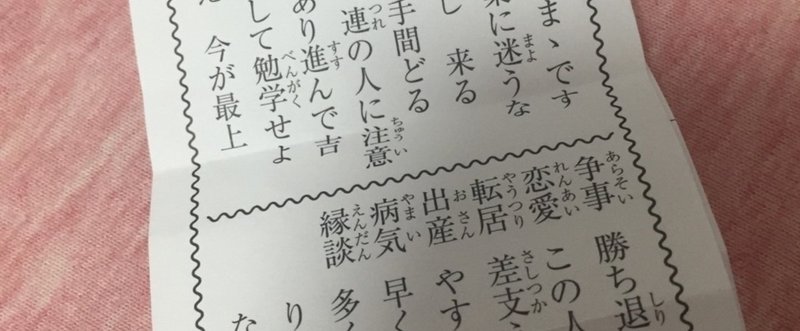 まゝです
に迷うな
し 来る
手間どる
連の人に注意
あり進んで吉
して勉学せよ
今が最上
争事 勝ち退
恋愛 この人
転居 差支
出産 やす
病気 早く
縁談 多
り
な